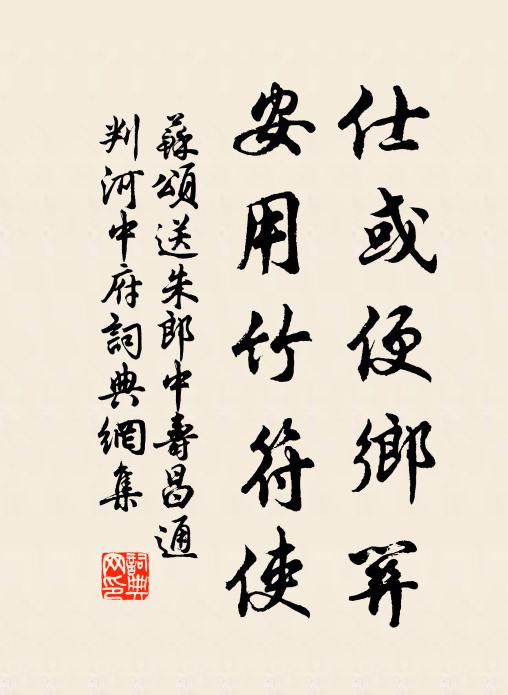 仕或便鄉笄
安用竹符使
蘇頌送朱郎中壽昌通
判河中府詞典網集
詞典網印